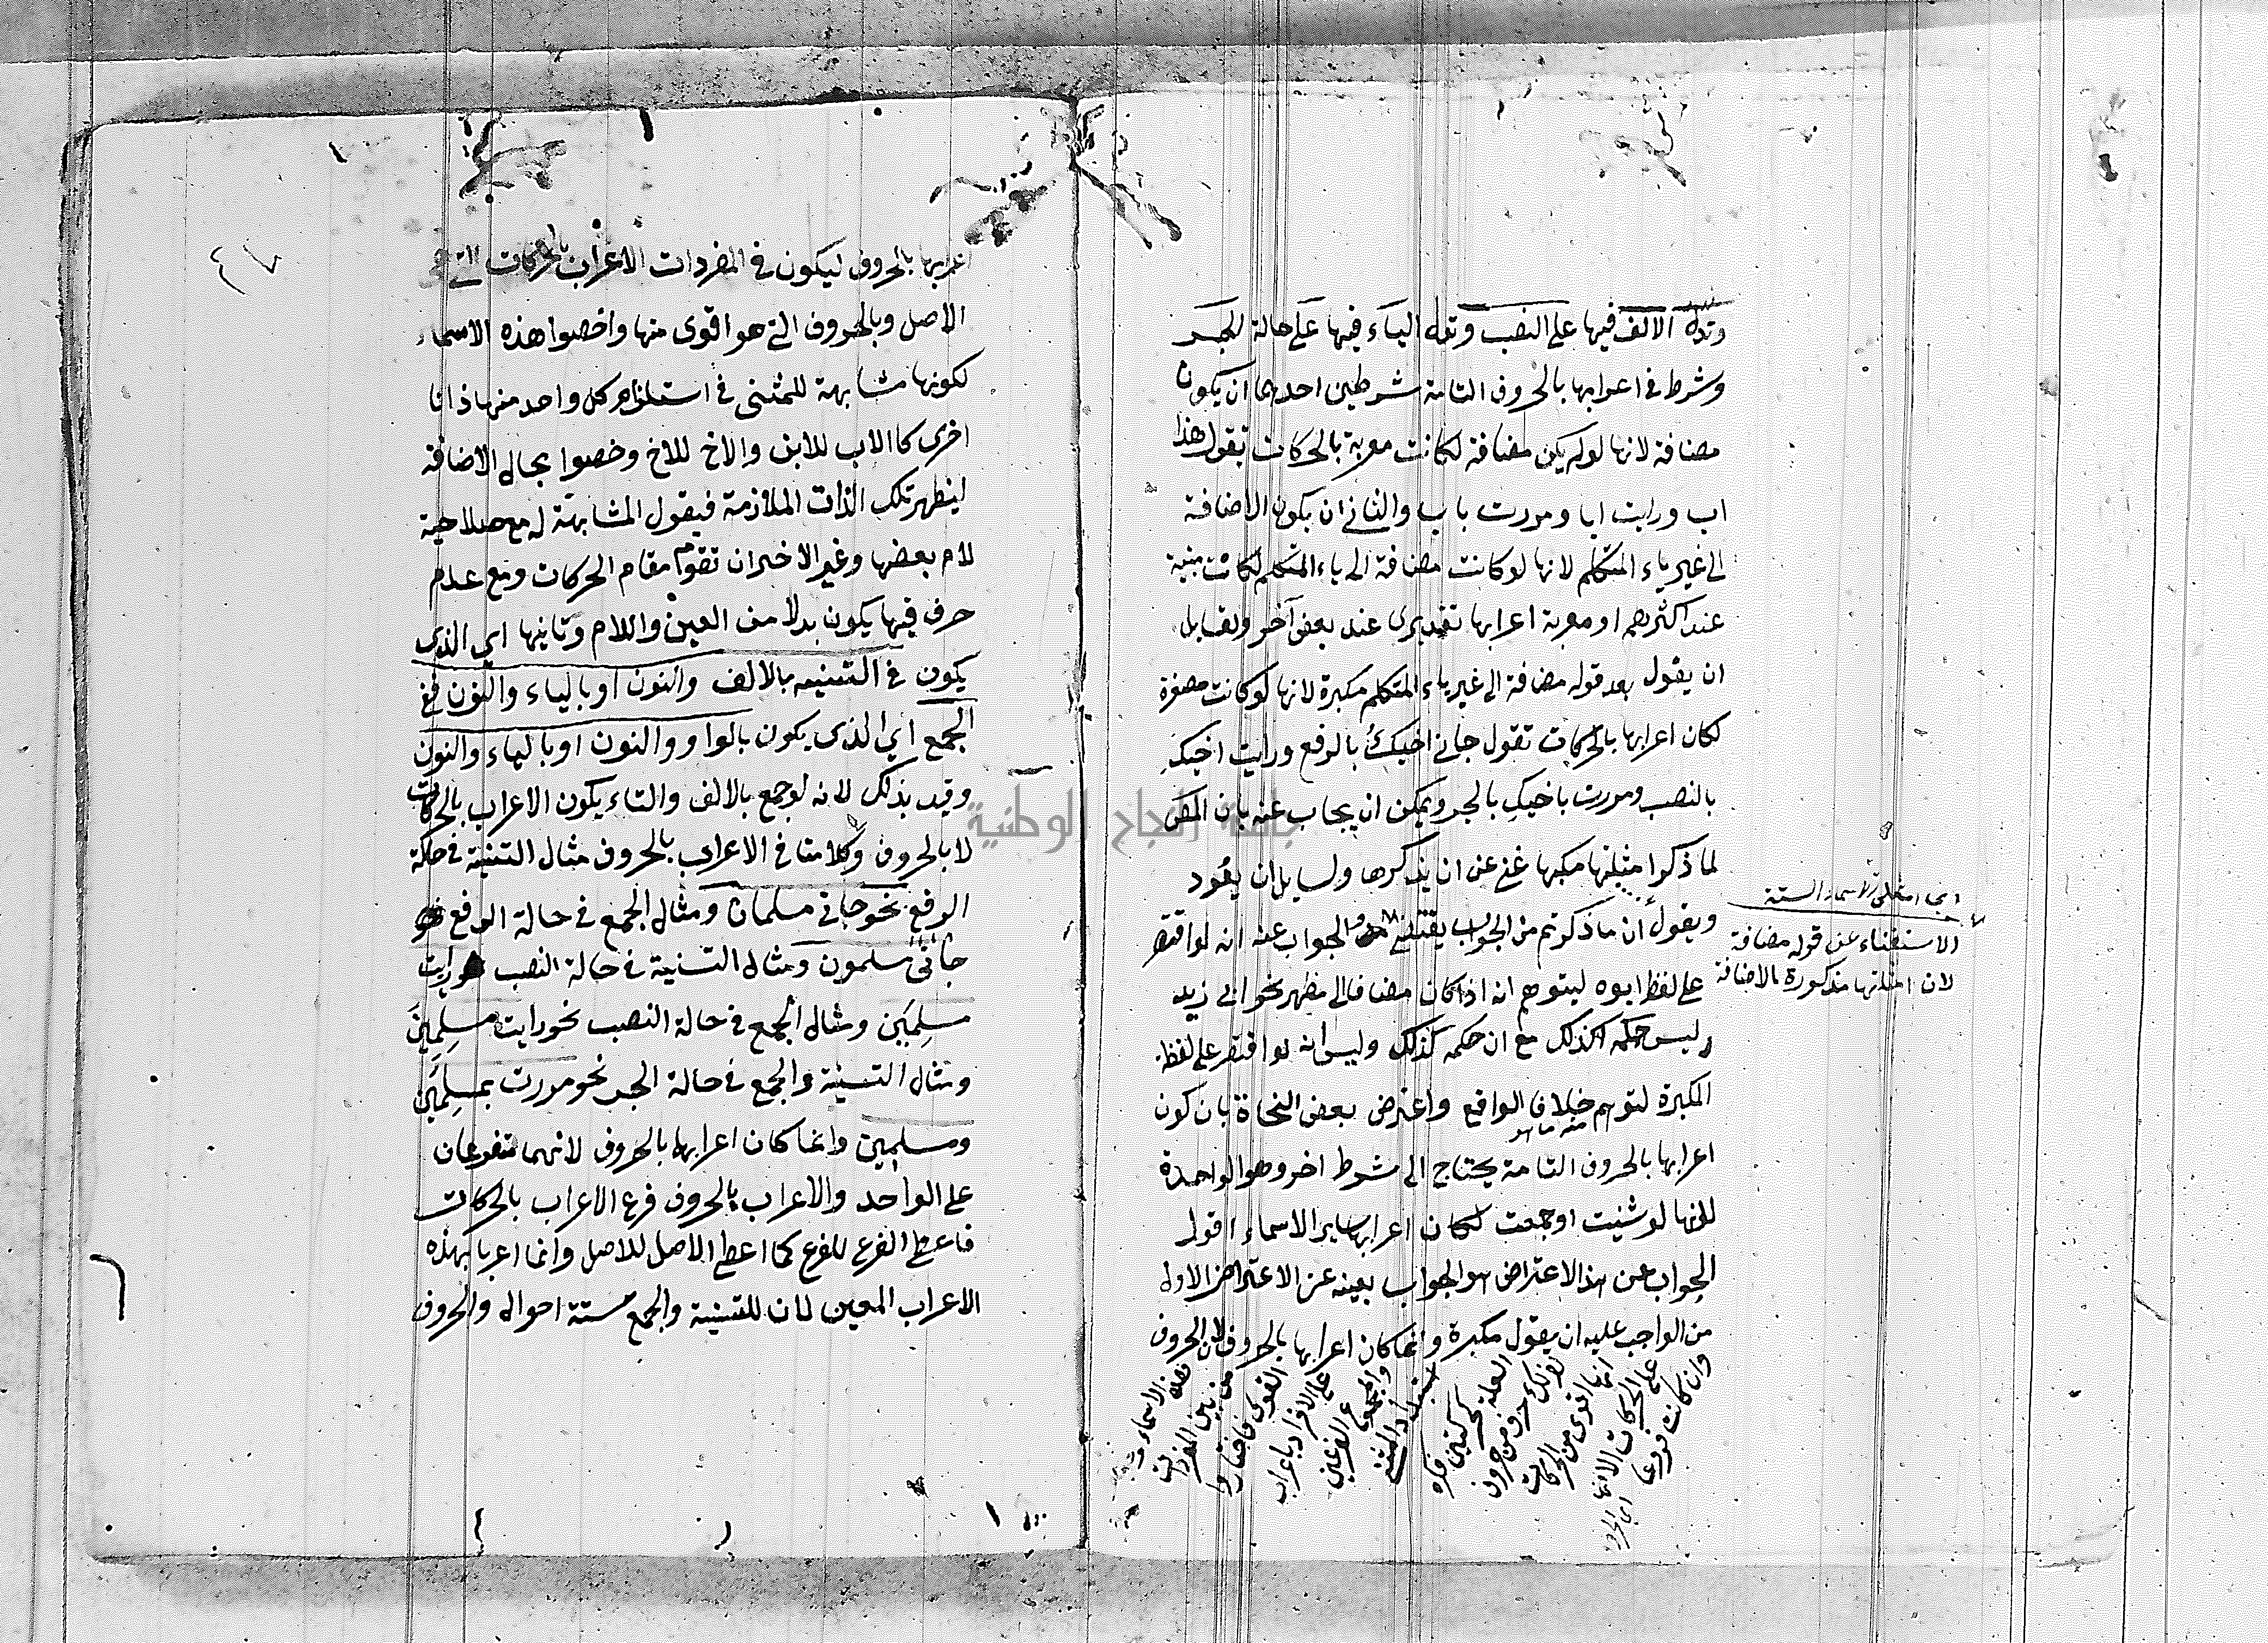 وتدل الالف فيها على النصب وتدل الياء فيها على حالة الجر
وشرط في اعرابها بالحروف التامة شرطين احدهما ان يكون
مضافة لانها لو لم يكن مضافة لكانت معربة بالحركات تقول هذا
اب ورايت ابا ومررت باب والثاني ان يكون الاضافة
الى غير ياء المتكلم لانها لو كانت مضافة الى ياء المتكلم لكانت مبنية
عند اكثرهم او معربة اعرابها تقديرى عند بعض آخر ولقايل
ان يقول بعد قوله مضافة الى غير ياء المتكلم مكبرة لانها لو كانت مصغرة
لكان اعرابها بالحركات تقول جاني اخيك بالرفع ورايت اخيك
بالنصب ومررت باخيك بالجر ويمكن ان يجاب عنه بان المص
لما ذكر امثلتها مكبرها غنى عن ان يذكرها ولسايل ان يعود
ويقول ان ما ذكرتم من الجواب يقتضى والجواب عنه انه لو اقتصر
على لفظ ابوه ليتوهم انه اذا كان مضافا الى مظهر نحو ابى زيد
وليس حكمه كذلك مع ان حكمه كذلك وليس انه لو اقتصر على لفظ
المكبرة لتوهم خلاف الواقع واعترض بعض النحاة بان كون
منه ما هو
اعرابها بالحروف التامة يحتاج الى شرط اخر وهو الواحدة
لانها لو ثنيت او جمعت لكان اعرابها ساير الاسماء اقول
الجواب عن هذا الاعتراض هو الجواب بعينه عن الاعتراض الاول
من الواجب عليه ان يقول مكبرة وانما كان اعرابها بالحروف لان الحروف
وان كانت فروعا
على الحركات الا انها
انها اقوى من الحركات
لان كل حرف من حروف
العلة كحركتين فكره
استبداد المثنى
والمجموع الفرعين
على الافراد باعراب
القوى فاختاروا
من بين المفردات
هذه الاسماء
اى امثلة الاسماء الستة
الاستغناء عن قوله مضافة
لان امثلتها مذكورة بالاضافة
اعربها بالحروف ليكون في المفردات الاعراب بالحركات التي هي
الاصل وبالحروف التي هو اقوى منها واخصوا هذه الاسماء
لكونها مشابهة للمثنى في استلزام كل واحد منها ذاتا
اخرى كالاب للابن والاخ للاخ وخصوا بحال الاضافة
ليظهر تلك الذات الملازمة فيقول المشابهة له مع صلاحية
لام بعضها وغير الاخر ان تقوم مقام الحركات ومع عدم
حرف فيها يكون بدلا من العين واللام وثانيها اي الذى
يكون في التثنية بالالف والنون او بالياء والنون في
الجمع اي الذى يكون بالواو والنون او بالياء والنون
وقيد بذلك لانه لو جمع بالالف والتاء يكون الاعراب بالحركات
لا بالحروف وكلامنا في الاعراب بالحروف مثال التثنية في حالة
الرفع نحو جانى مسلمان ومثال الجمع في حالة الرفع نحو
جانى مسلمون ومثال التثنية في حالة النصب نحو رايت
مسلمين ومثال الجمع في حالة النصب نحو رايت مسلمين
ومثال التثنية والجمع في حالة الجر نحو مررت بمسلمين
ومسلمين وانما كان اعرابها بالحروف لانهما متفرعان
على الواحد والاعراب بالحروف فرع الاعراب بالحركات
فاعطى الفرع للفرع كما اعطى الاصل للاصل وانما اعربا بهذه
الاعراب المعين لان للتثنية والجمع ستة احوال والحروف
جامعة النجاح الوطنية